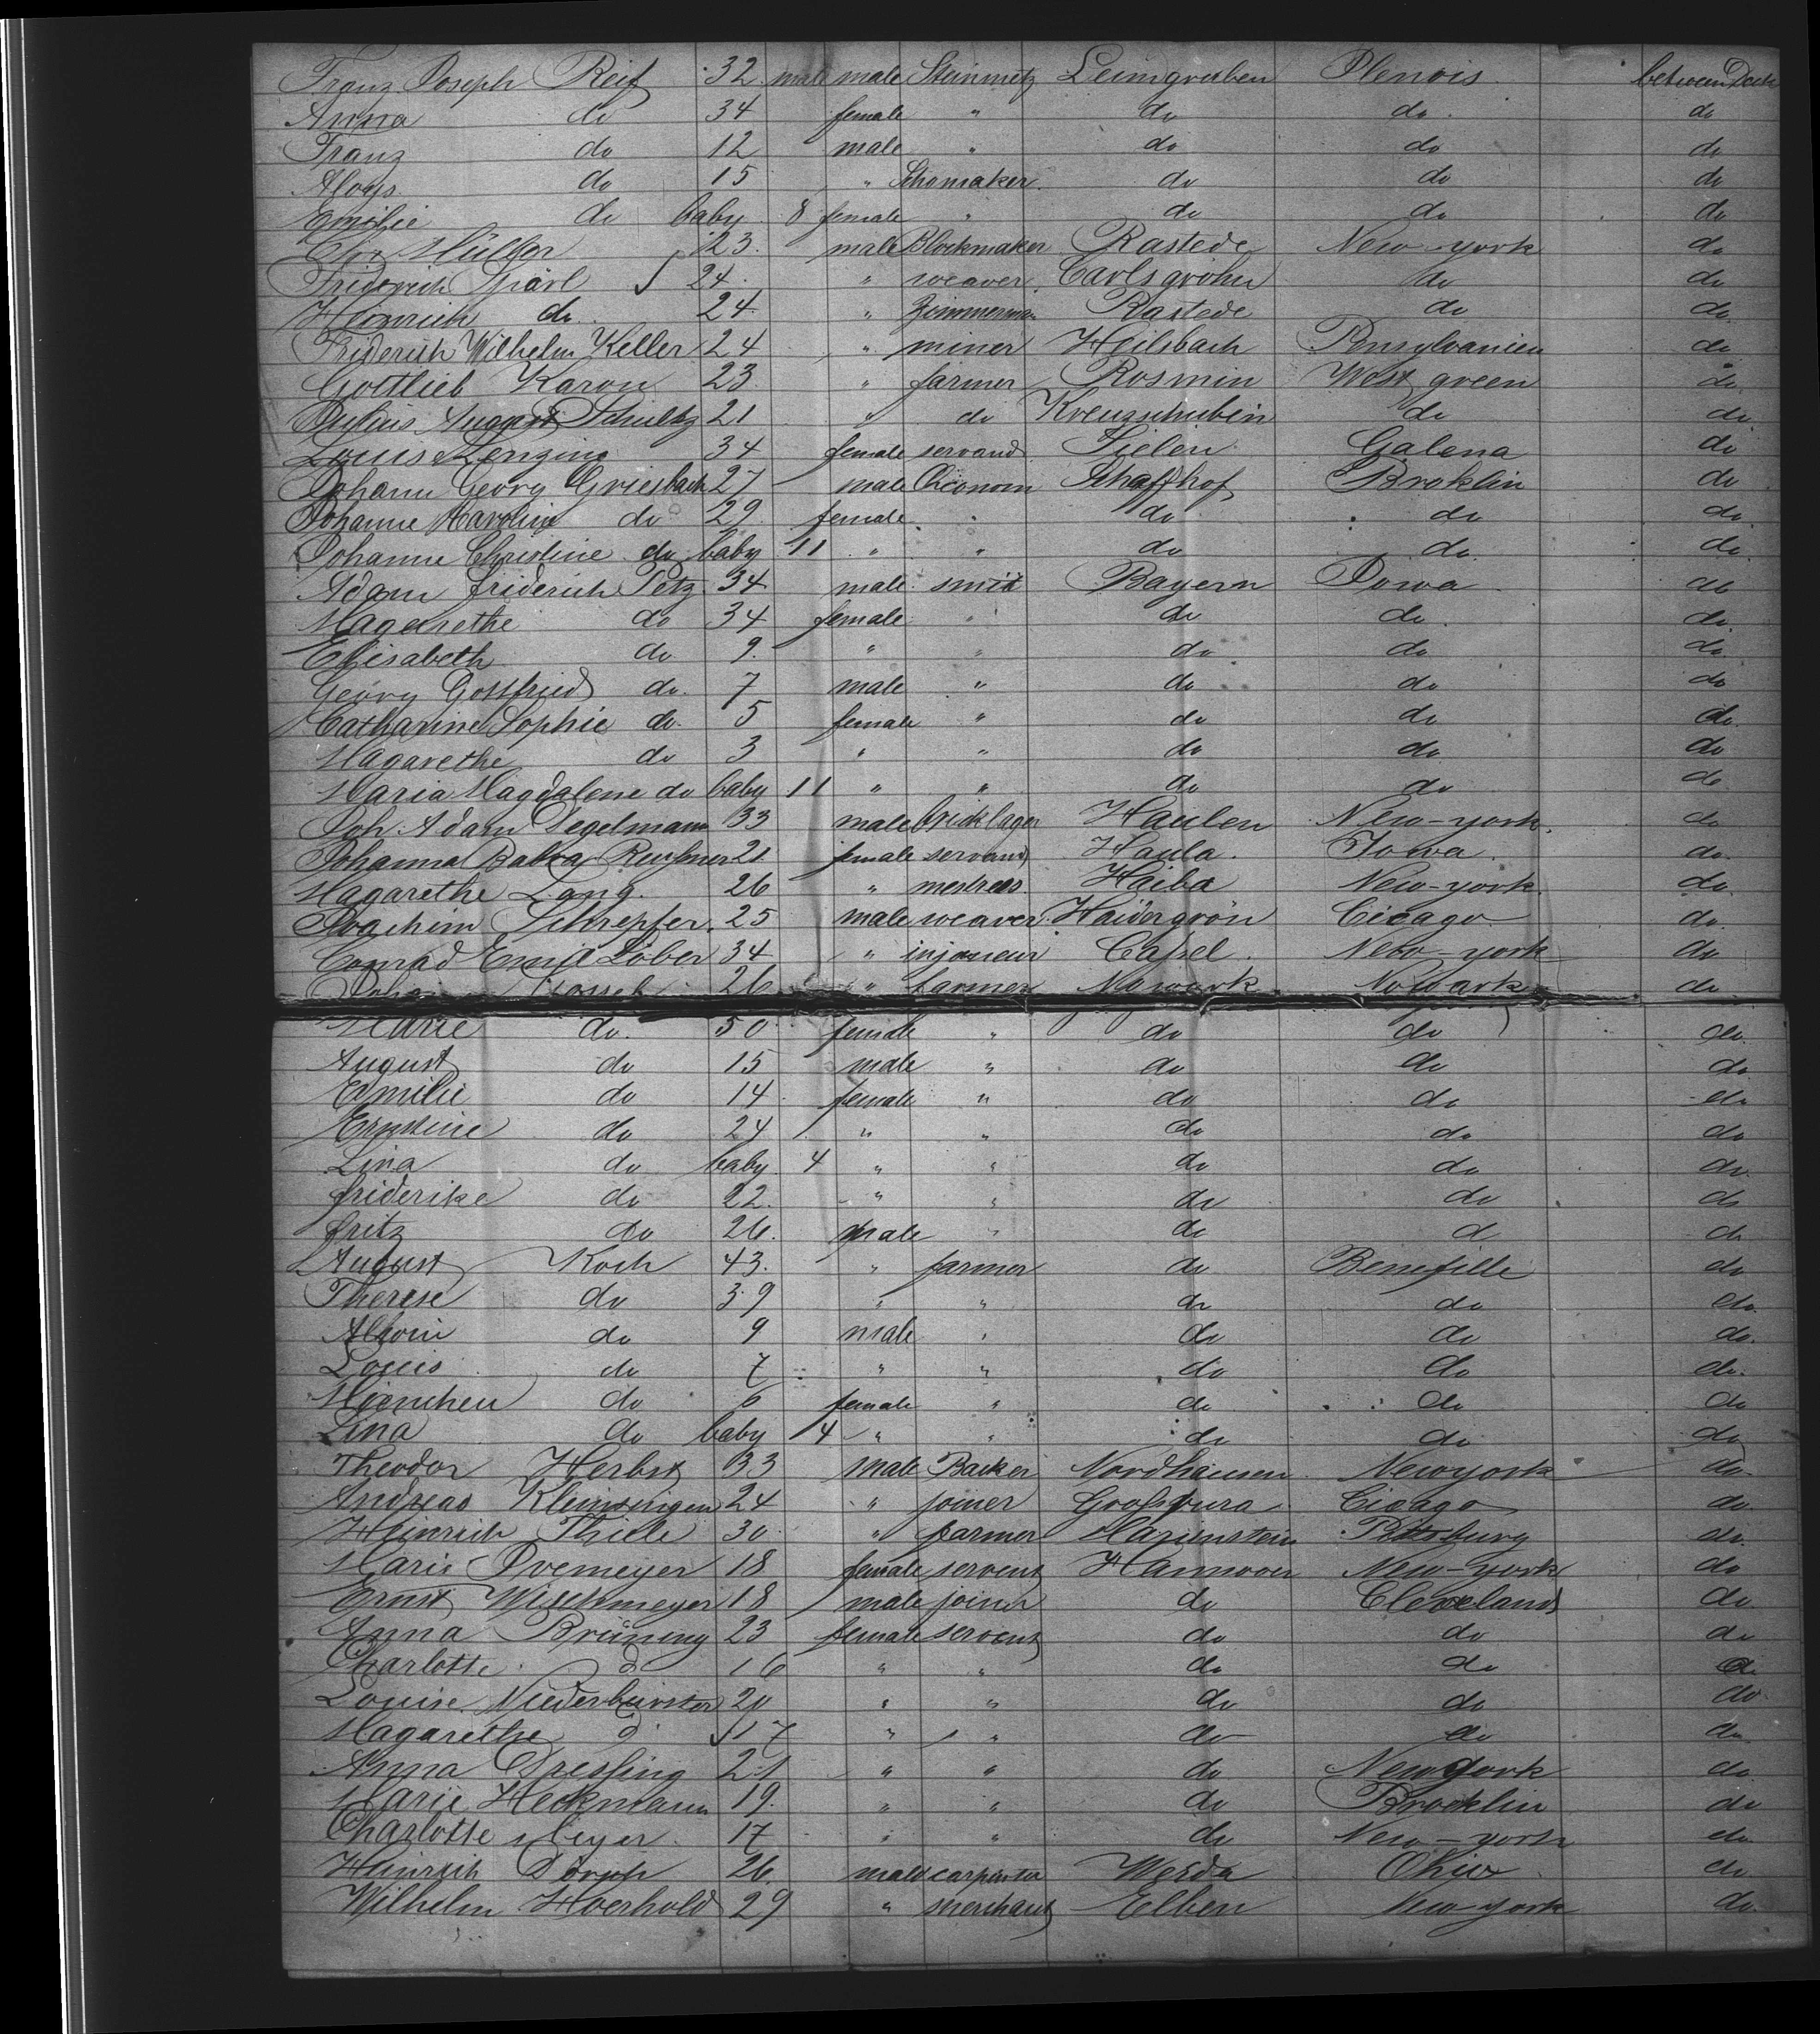 Franz Joseph Reif 32 male male Steinmetz Leimgruben Ilenois between Deck
Anna do 34 female " do do do
Franz do 12 male " do do do
Aloys do 15 " Schomaker do do do
Emilie do baby 8 female " do do do
Chr Müller 23 male Blockmaker Rastede New-york do
Friderich Spärl 24 " weaver Carlsgröhn do do
Heinrich do 24 " Zimmerman Rastede do do
Friderich Wilhelm Keller 24 " miner Heilsbach Pensylvanien do
Gottlieb Karow 23 " farmer Rosmin West green do
Julius August Schultz 21 " do Kreuzschubin do do
Louis Lenzing 34 female servand Sielen Galena do
Johann Georg Griesbach 27 male Öconom Schaffhof Broklin do
Johanne Karoline do 29 female " do do do
Johanne Christine do baby 11 " " do do do
Adam friderich Petz 34 male smit Bayern Iowa do
Magarethe do 34 female " do do do
Elisabeth do 9 " " do do do
Georg Gottfried do 7 male " do do do
Catharine Sophie do 5 female " do do do
Magarethe do 3 " " do do do
Maria Magdalene do baby 11 " " do do do
Joh. Adam Degelmann 33 male bricklager Haulen New-york do
Johanna Babra 21 female servand Haula Iowa do
Magarethe Lang 26 " mestress Haiba New-york do
Joachim Schrepfer 25 male weaver Haidergrön Cicago do
Conrad Emil Löber 34 " injoneur Cassel New-york do
26 " farmer Nowark do
Marie do 50 female " do do do
August do 15 male " do do do
Emilie do 14 female " do do do
Ernstine do 24 " " do do do
Lina do baby 4 " " do do do
friderike do 22 " " do do do
fritz do 26 male " do d do
August Koch 43 " farmer do Benefille do
Therese do 39 " " do do do
Alwin do 9 male " do do do
Louis do 7 " " do do do
Mienchen do 6 female " do do do
Lina do baby 4 " " do do do
Theodor Herbst 33 male Backer Nordhausen Newyork do
Andreas Kleinsingen 24 " joiner Grossfura Cicago do
Heinrich Thiele 30 " farmer Marienstein Pittsburg do
Marie Ovemeyer 18 female servent Hannover New-york do
Ernst Wischmeyer 18 male joiner do Cleveland do
Anna Brüning 23 female servent do do do
Charlotte d 16 " " do do do
Louise Niederbürster 20 " " do do do
Magarethe d 17 " " do do do
Anna Dressing 21 " " do New york do
Marie Heckmann 19 " " do Brocklin do
Charlotte Meyer 17 " " do New-york do
Heinrich 26 male carpenter Werda Ohio do
Wilhelm Hoerhold 29 " merchant Elben New-york do